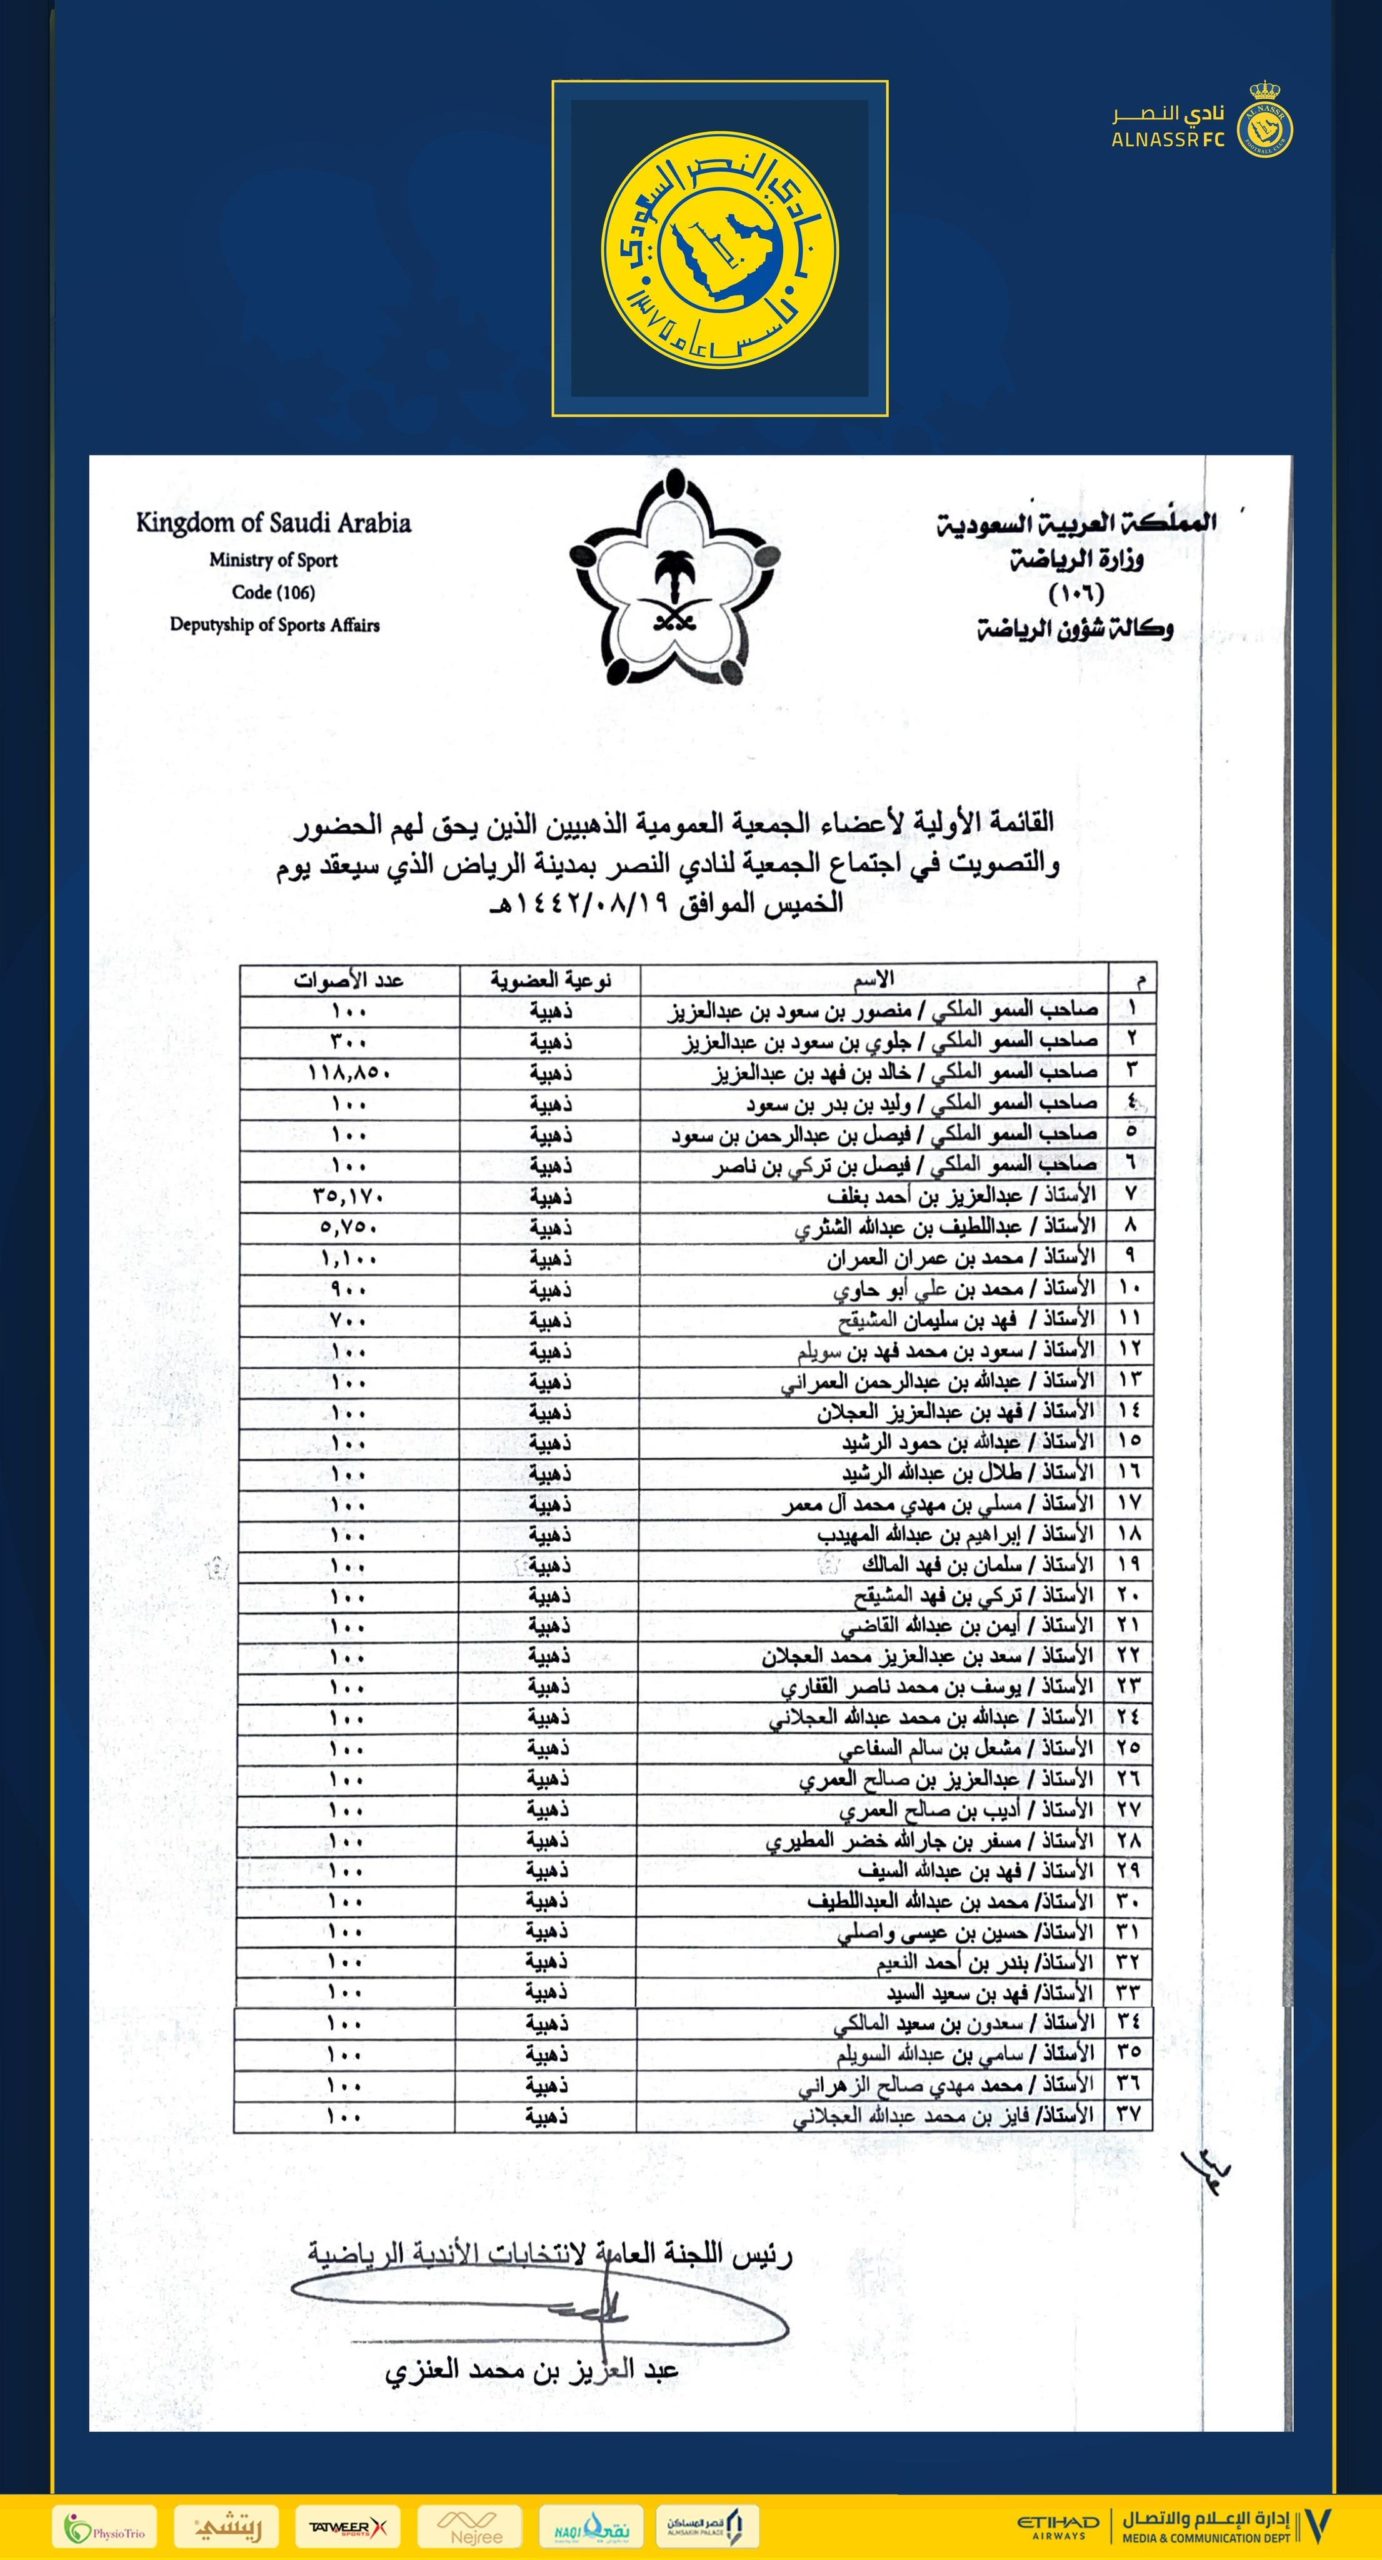 نادي النصر
ALNASSR FC
نادي النصر السعودي
تأسس عام ١٣٧٥
Kingdom of Saudi Arabia
Ministry of Sport
Code (106)
Deputyship of Sports Affairs
المملكة العربية السعودية
وزارة الرياضة
(١٠٦)
وكالة شؤون الرياضة
القائمة الأولية لأعضاء الجمعية العمومية الذهبيين الذين يحق لهم الحضور
والتصويت في اجتماع الجمعية لنادي النصر بمدينة الرياض الذي سيعقد يوم
الخميس الموافق ١٤٤٢/٠٨/١٩هـ
م الاسم نوعية العضوية عدد الأصوات
١ صاحب السمو الملكي / منصور بن سعود بن عبدالعزيز ذهبية ١٠٠
٢ صاحب السمو الملكي / جلوي بن سعود بن عبدالعزيز ذهبية ٣٠٠
٣ صاحب السمو الملكي / خالد بن فهد بن عبدالعزيز ذهبية ١١٨,٨٥٠
٤ صاحب السمو الملكي / وليد بن بدر بن سعود ذهبية ١٠٠
٥ صاحب السمو الملكي / فيصل بن عبدالرحمن بن سعود ذهبية ١٠٠
٦ صاحب السمو الملكي / فيصل بن تركي بن ناصر ذهبية ١٠٠
٧ الأستاذ / عبدالعزيز بن أحمد بغلف ذهبية ٣٥,١٧٠
٨ الأستاذ / عبداللطيف بن عبدالله الشثري ذهبية ٥,٧٥٠
٩ الأستاذ / محمد بن عمران العمران ذهبية ١,١٠٠
١٠ الأستاذ / محمد بن علي أبو حاوي ذهبية ٩٠٠
١١ الأستاذ / فهد بن سليمان المشيقح ذهبية ٧٠٠
١٢ الأستاذ / سعود بن محمد فهد بن سويلم ذهبية ١٠٠
١٣ الأستاذ / عبدالله بن عبدالرحمن العمراني ذهبية ١٠٠
١٤ الأستاذ / فهد بن عبدالعزيز العجلان ذهبية ١٠٠
١٥ الأستاذ / عبدالله بن حمود الرشيد ذهبية ١٠٠
١٦ الأستاذ / طلال بن عبدالله الرشيد ذهبية ١٠٠
١٧ الأستاذ / مسلي بن مهدي محمد آل معمر ذهبية ١٠٠
١٨ الأستاذ / إبراهيم بن عبدالله المهيدب ذهبية ١٠٠
١٩ الأستاذ / سلمان بن فهد المالك ذهبية ١٠٠
٢٠ الأستاذ / تركي بن فهد المشيقح ذهبية ١٠٠
٢١ الأستاذ / أيمن بن عبدالله القاضي ذهبية ١٠٠
٢٢ الأستاذ / سعد بن عبدالعزيز محمد العجلان ذهبية ١٠٠
٢٣ الأستاذ / يوسف بن محمد ناصر القفاري ذهبية ١٠٠
٢٤ الأستاذ / عبدالله بن محمد عبدالله العجلاني ذهبية ١٠٠
٢٥ الأستاذ / مشعل بن سالم السفاعي ذهبية ١٠٠
٢٦ الأستاذ / عبدالعزيز بن صالح العمري ذهبية ١٠٠
٢٧ الأستاذ / أديب بن صالح العمري ذهبية ١٠٠
٢٨ الأستاذ / مسفر بن جارالله خضر المطيري ذهبية ١٠٠
٢٩ الأستاذ / فهد بن عبدالله السيف ذهبية ١٠٠
٣٠ الأستاذ/ محمد بن عبدالله العبداللطيف ذهبية ١٠٠
٣١ الأستاذ/ حسين بن عيسى واصلي ذهبية ١٠٠
٣٢ الأستاذ/ بندر بن أحمد النعيم ذهبية ١٠٠
٣٣ الأستاذ/ فهد بن سعيد السيد ذهبية ١٠٠
٣٤ الأستاذ / سعدون بن سعيد المالكي ذهبية ١٠٠
٣٥ الأستاذ / سامي بن عبدالله السويلم ذهبية ١٠٠
٣٦ الأستاذ / محمد مهدي صالح الزهراني ذهبية ١٠٠
٣٧ الأستاذ/ فايز بن محمد عبدالله العجلاني ذهبية ١٠٠
رئيس اللجنة العامة لانتخابات الأندية الرياضية
عبد العزيز بن محمد العنزي
PhysioTrio
ريتشي
TATWEER
SPORTS
Nejree
NAQI نقي
قصر المساكن
ALMSAKIN PALACE
ETIHAD
AIRWAYS
إدارة الإعلام والاتصال
MEDIA & COMMUNICATION DEPT